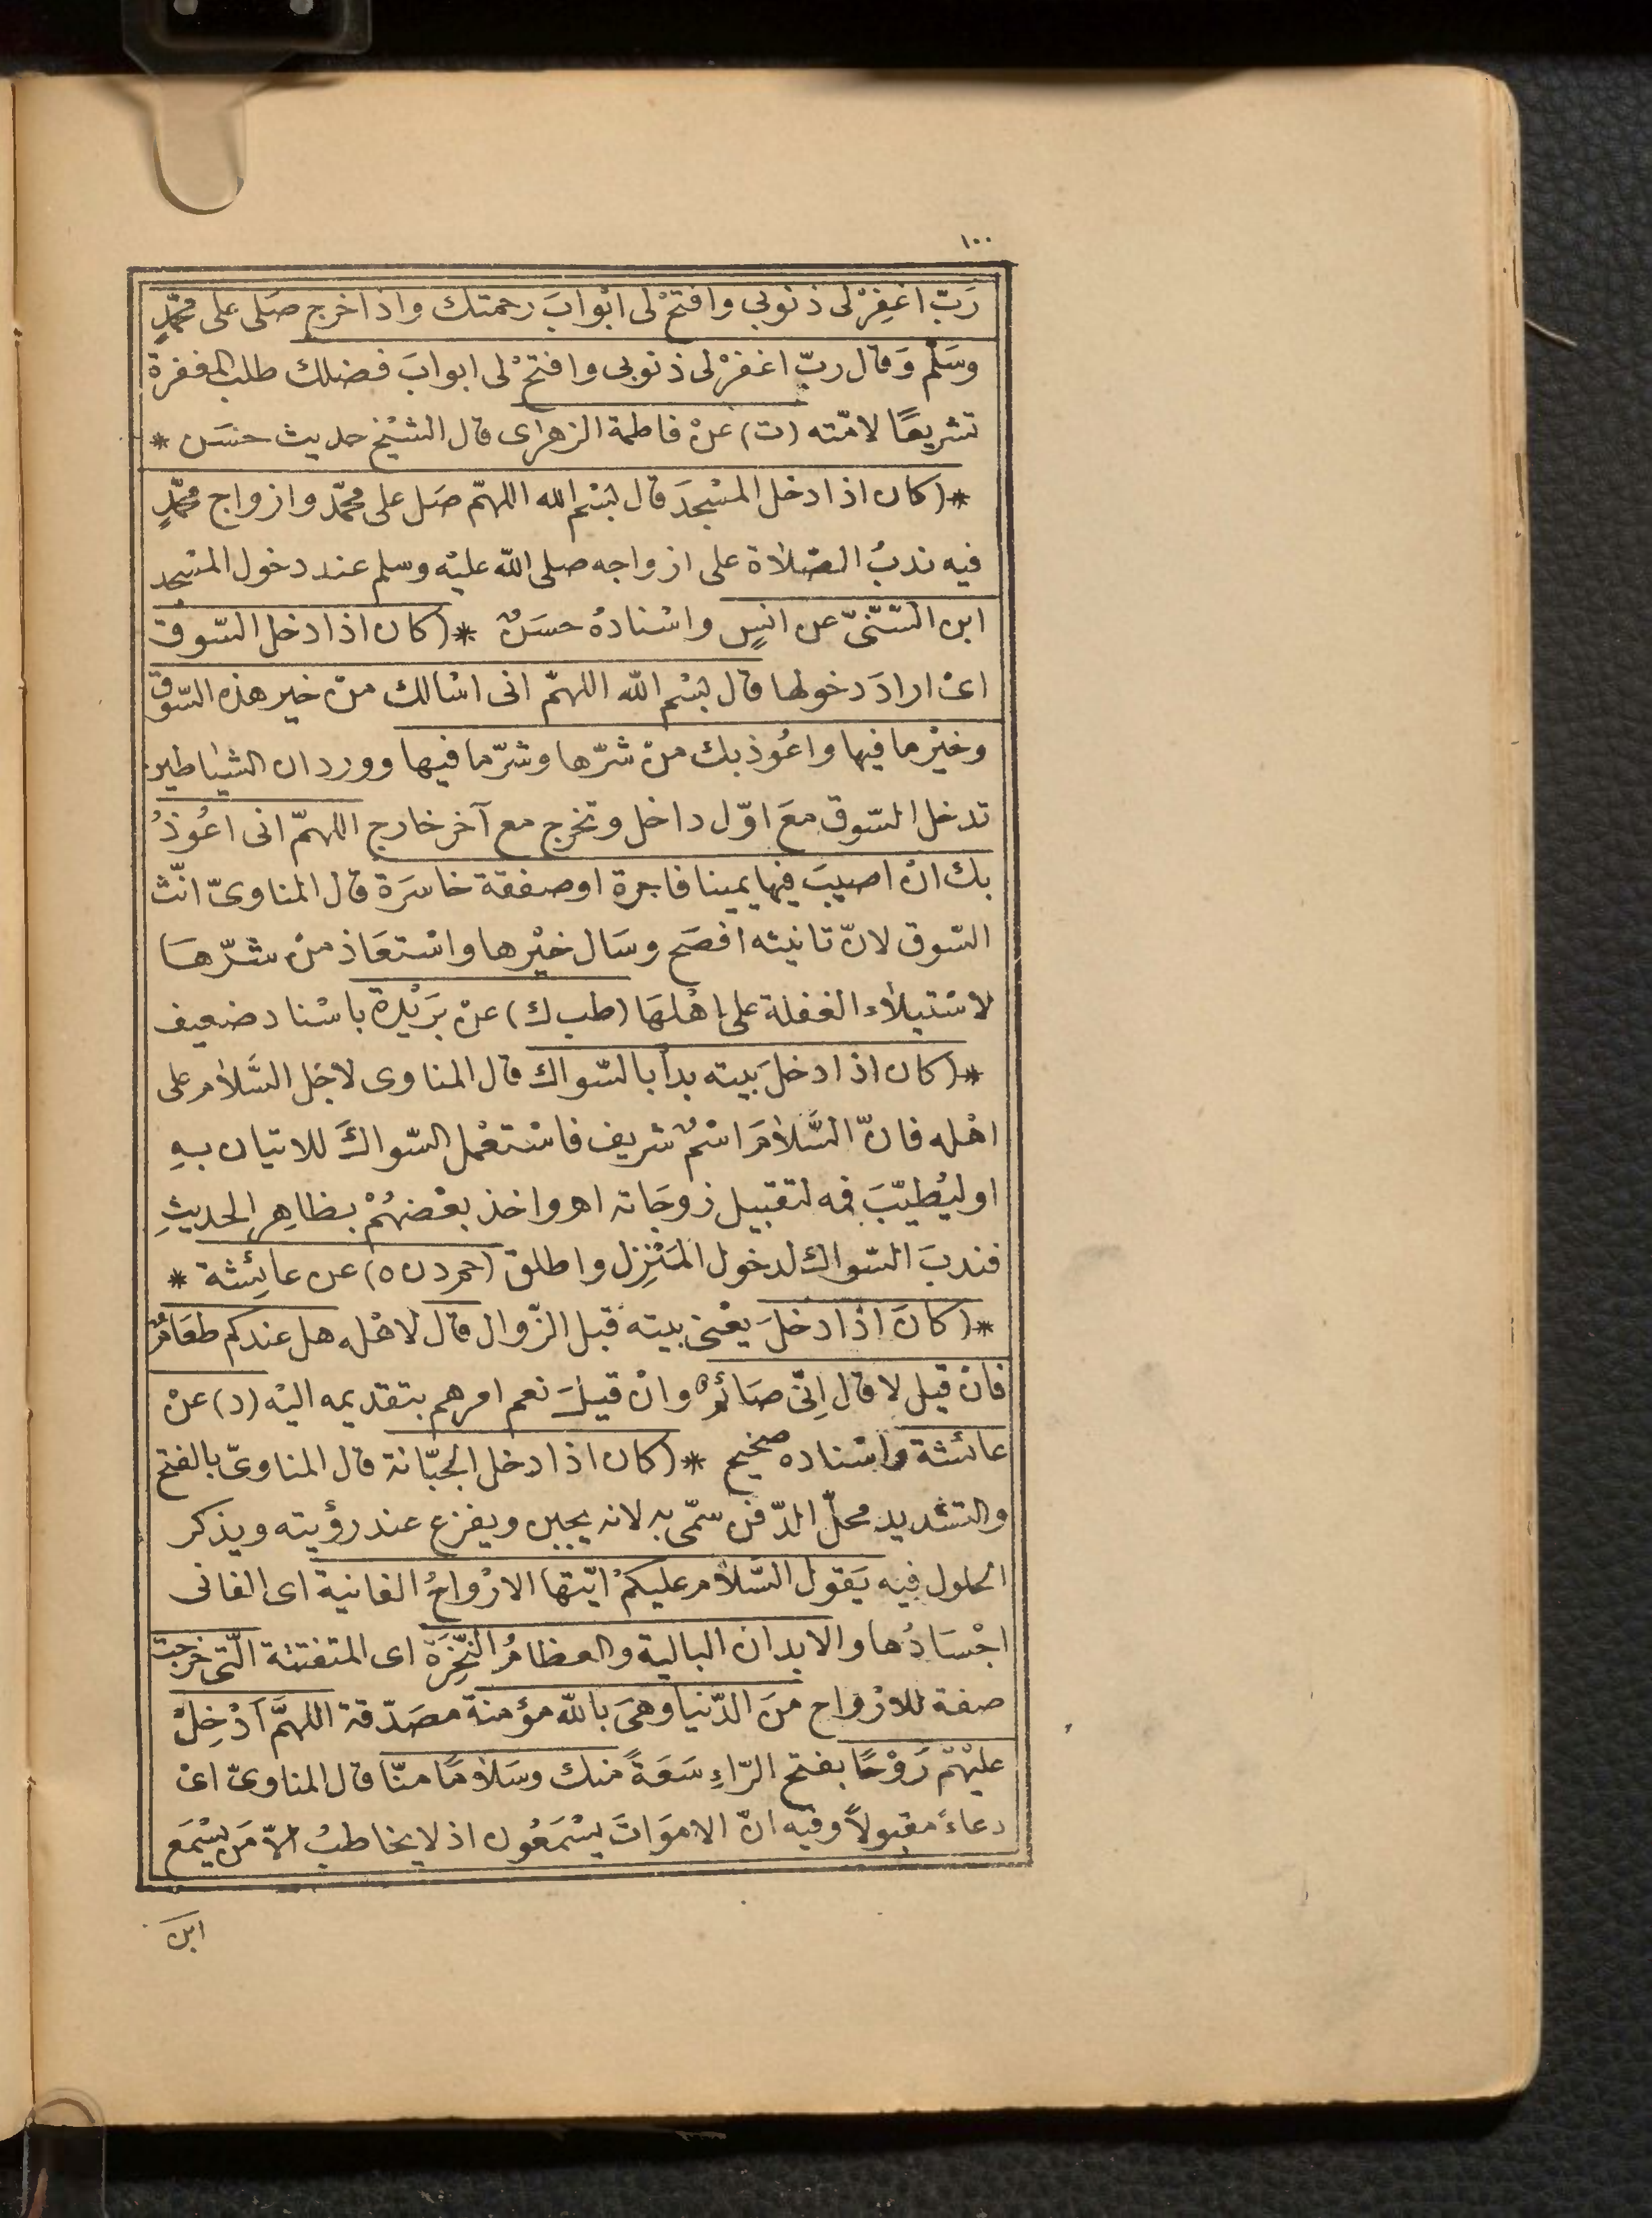 ١٠٠
رَبّ اغفِرْ لى ذنوبي وافتحْ لى ابْوابَ رحمتك واذا خرج صَلى على محمّدٍ
وسَلّم وَقال ربّ اغفرْ لى ذنوبى وافتحْ لى ابوابَ فضلك طلب المغفرة
تشريعًا لامّته (ت) عنْ فاطمة الزهراى قال الشيْخ حديث حسَن *
*(كان اذا دخل المسْجدَ قال بسْم الله اللهمّ صَل على محمّد وازواج محمّدٍ
فيه ندبُ الصّلاة على ازواجه صلى الله عليْه وسلم عند دخول المسْجد
ابن السّنّىّ عن انسٍ واسْنادهُ حسَنٌ *(كان اذا دخل السّوق
اىْ ارادَ دخولها قال بسْم الله اللهمّ انى اسْالك منْ خير هذه السّوق
وخيْر ما فيها واعُوذ بك منْ شرّها وشرّ ما فيها وورد ان الشياطين
تدخل السّوق معَ اوّل داخل وتخرج مع آخر خارج اللهمّ انى اعُوذُ
بك انْ اصيبَ فيها يمينا فاجرة او صفقة خاسَرة قال المناوىّ انّث
السّوق لانّ تانيثه افصَح وسَال خيْرها واسْتعَاذ منْ شرّهَا
لاسْتيلاء الغفلة على اهْلهَا (طب ك) عنْ بَريْدة باسْناد ضعيف
*(كان اذا دخلَ بيته بدأ بالسّواك قال المناوى لاجْل السَّلام على
اهْله فانّ السَّلامَ اسْمٌ شريف فاسْتعْمل السّواكَ للاتيان بهِ
او ليُطيّبَ فمه لتقبيل زوجَاته اهـ واخذ بعْضهُمْ بظاهِر الحديثِ
فندبَ السّواك لدخول المَنْزِل واطلق (حم د ن ه) عن عائِشة *
*(كانَ اذا دخلَ يعْنى بيته قبل الزّوال قال لاهْله هل عندكم طعَامٌ
فانْ قيل لا قال اِنّى صَائمٌ وانْ قيلَ نعم امرهم بتقديمه اليْه (د) عنْ
عائشة واسْناده صحيح *(كان اذا دخل الجبّانة قال المناوىّ بالفتح
والتشديد محلّ الدّفن سمّى به لانه يجبن ويفزع عند رؤيته ويذكر
الحلول فيه يَقول السَّلام عليكمْ ايّتها الارْواحُ الفانية اى الفانى
اجْسَادُها والابدان البالية والعظامُ النَّخِرَة اى المتفتتة الّتى خرجت
صفة للارْواح منَ الدّنيا وهىَ بالله مؤمنة مصَدّقة اللهمَّ اَدْخِلْ
عليْهمْ رَوْحًا بفتح الرّاءِ سَعَةً منك وسَلامًا منّا قال المناوىّ اىْ
دعاءً مقبولاً وفيه انّ الاموَاتَ يسْمَعُون اذ لا يخاطبُ الاّ مَن يسْمَع
ابن